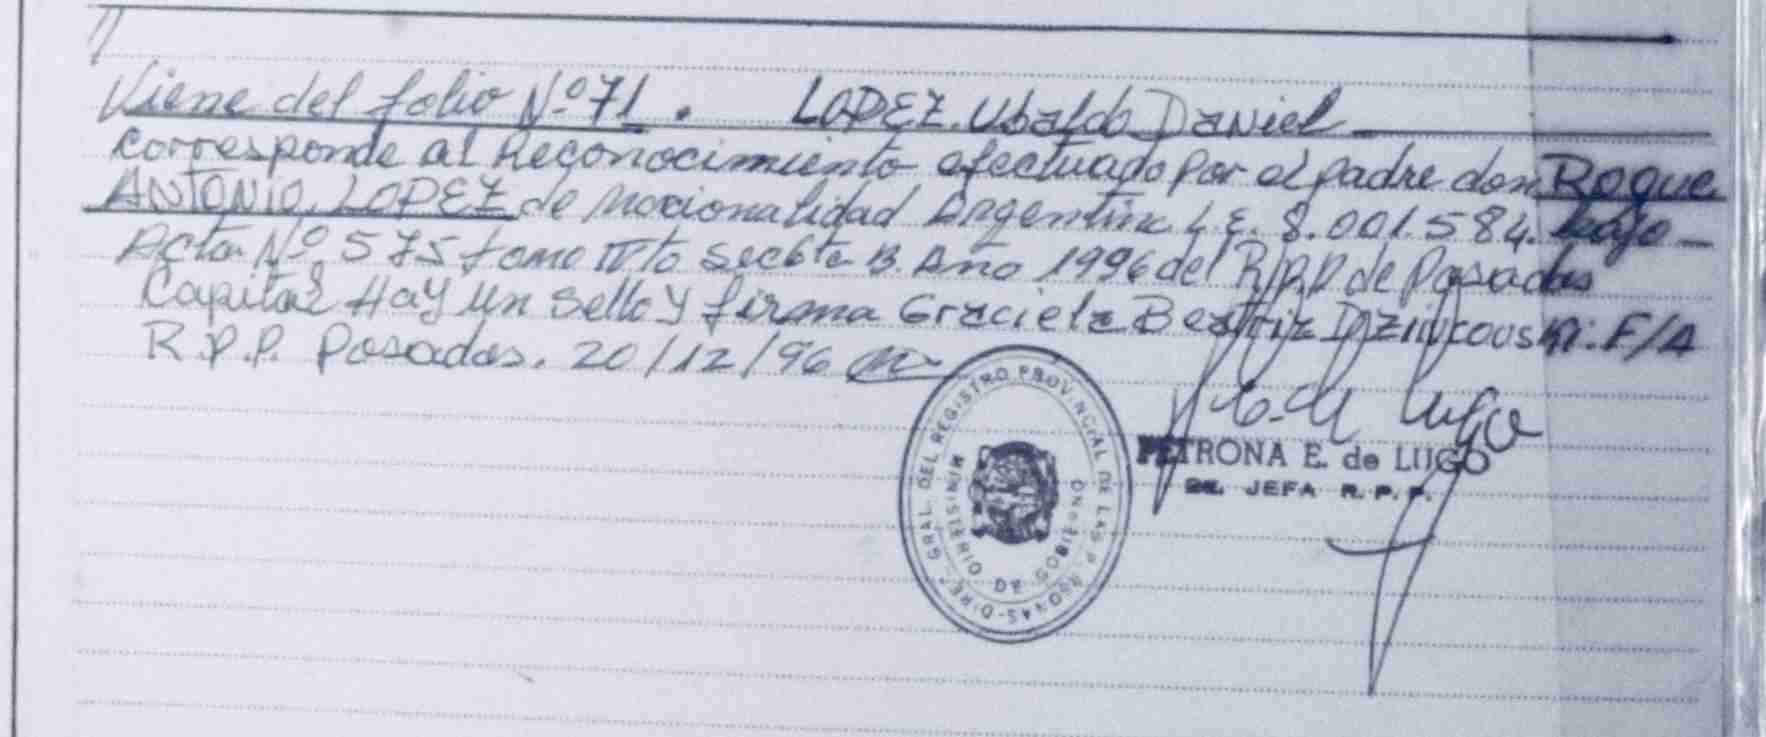 Viene del folio Nº 71. LOPEZ. Ubaldo Daniel
Corresponde al Reconocimiento efectuado por el padre don Roque
ANTONIO. LOPEZ de nacionalidad Argentina L.E. 8.001.584. bajo
Acta Nº 575 tomo IVto B. Año 1996 del R.P.P de Posadas
Capital Hay un sello y firma Graciela Beatriz F/A
R.P.P. Posadas. 20/12/96
DIREC. GRAL. DEL REGISTRO PROVINCIAL DE LAS PERSONAS
MINISTERIO DE GOBIERNO
PETRONA E. de LUGO
JEFA R.P.P.